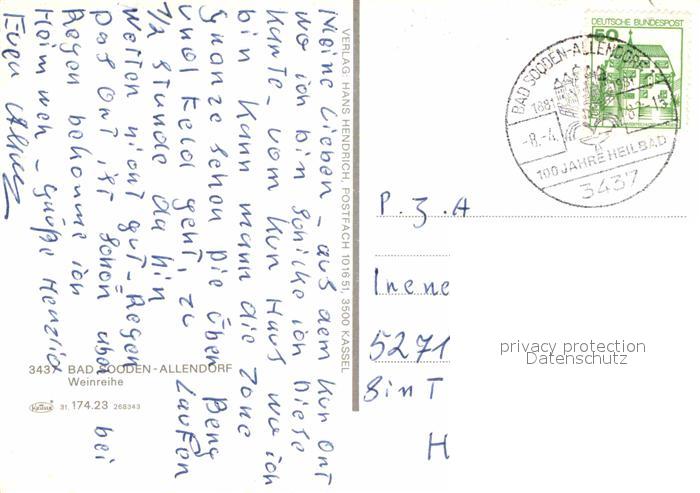 Meine Lieben - aus dem Kur Ort
wo ich bin schicke ich diese
Karte - vom Kur Haus wo ich
bin kann mann die Zone
Gränze sehen die über Berg
und Feld geht, zu Laufen
1/2 stunde da hin
Wetter nicht gut - Regen
das Ort ist schon aber bei
Regen bekomme ich
Heim weh - grüße Herzlich
Euer
VERLAG: HANS HENDRICH, POSTFACH 101651, 3500 KASSEL
3437 BAD SOODEN-ALLENDORF
Weinreihe
Krüger 31.174.23 268343
DEUTSCHE BUNDESPOST
50
BAD SOODEN-ALLENDORF
1881
-8.-4.
100 JAHRE HEILBAD
3437
P. z. A
Irene
5271
Sint
H
privacy protection
Datenschutz